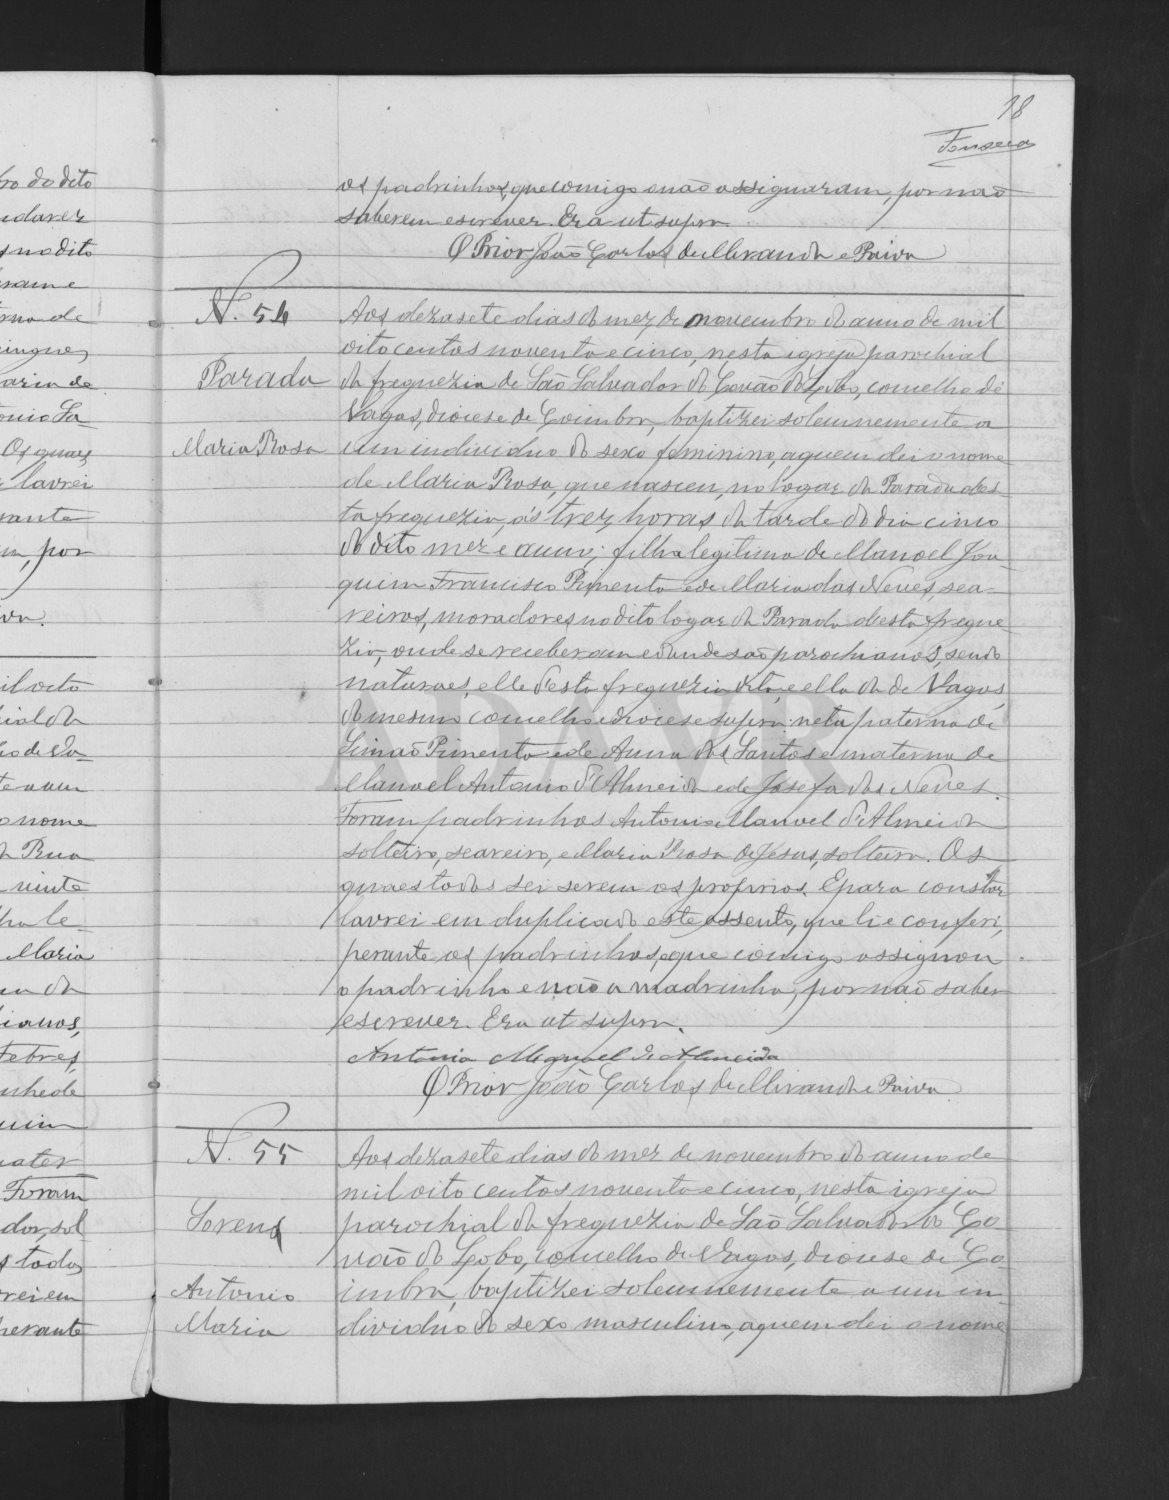 18
Fonseca
os padrinhos, que comigo e não assignaram, por não
saberem escrever. Era ut supra.
O Prior João Carlos de Miranda e Paiva
N. 54
Parada
Maria Rosa
Aos dezasete dias do mez de novembro do anno de mil
oito centos noventa e cinco, nesta igreja parochial
da freguezia de São Salvador do Covão do Lobo, concelho de
Vagos, diocese de Coimbra, baptizei solemnemente a
um individuo do sexo feminino, a quem dei o nome
de Maria Rosa, que nasceu, no logar da Parada des-
ta freguezia, ás trez horas da tarde do dia cinco
do dito mez e anno; filha legitima de Manoel Joa-
quim Francisco Pimenta e de Maria das Neves, sea-
reiros, moradores no dito logar da Parada desta fregue
zia, onde se receberam e donde são parochianos, sendo
naturaes, elle d'esta freguezia dita, e ella da de Vagos,
do mesmo concelho e diocese supra: neta paterna de
Simão Pimenta e de Anna dos Santos e materna de
Manoel Antonio d'Almeida e de Josefa das Neves.
Foram padrinhos Antonio Manoel d'Almeida
solteiro, seareiro, e Maria Rosa de Jesus, solteira. Os
quaes todos sei serem os proprios. E para constar
lavrei em duplicado este assento, que li e conferi,
perante os padrinhos, e que comigo assignou
o padrinho e não a madrinha, por não saber
escrever. Era ut supra.
Antonio Manoel d'Almeida
O Prior João Carlos de Miranda e Paiva
N. 55
Antonio
Maria
Aos dezasete dias do mez de novembro do anno de
mil oito centos noventa e cinco, nesta igreja
parochial da freguezia de São Salvador do Co
vão do Lobo, concelho de Vagos, diocese de Co-
imbra, baptizei solemnemente a um in-
dividuo do sexo masculino, a quem dei o nome
ADAVR